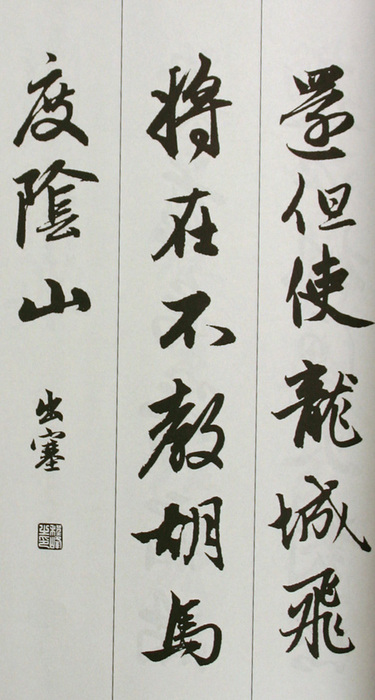 還但使龍城飛
將在不教胡馬
度陰山
出塞